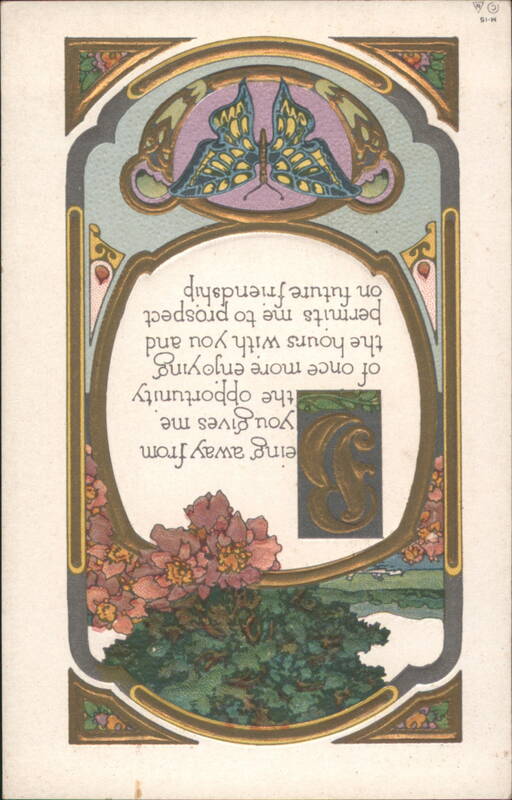 Being away from
you gives me
the opportunity
of once more enjoying
the hours with you and
permits me to prospect
on future friendship
H-15